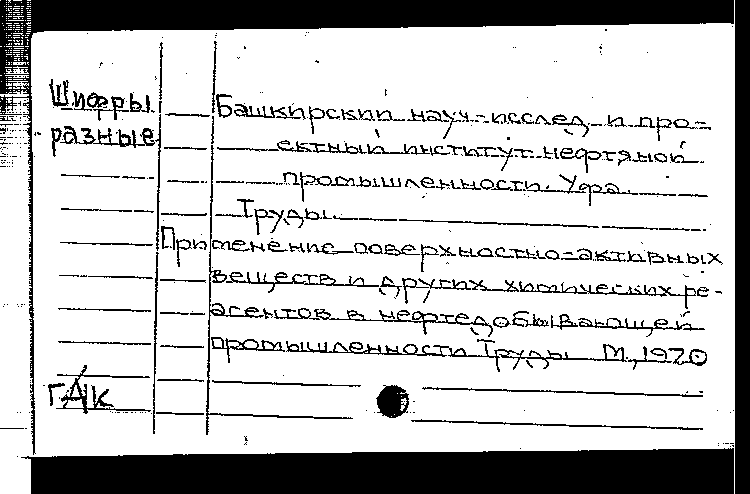 Шифры
разные
Башкирский науч.-исслед. и про-
ектный институт нефтяной
промышленности. Уфа.
Труды.
Применение поверхностно-активных
веществ и других химических ре-
агентов в нефтедобывающей
промышленности Труды М., 1970
ГАК